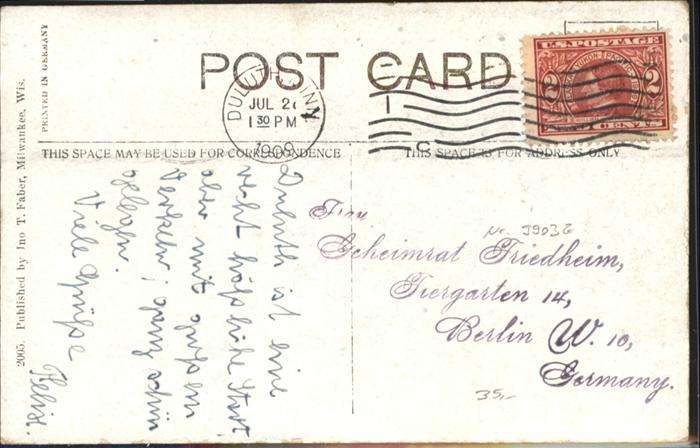 POST CARD
U.S. POSTAGE
2 2
CENTS
DULUTH MINN
JUL 2
1 30 PM
1909
THIS SPACE MAY BE USED FOR CORRESPONDENCE
THIS SPACE IS FOR ADDRESS ONLY
PRINTED IN GERMANY
2005. Published by Jno T. Faber, Milwaukee, Wis.
Duluth ist eine
recht hässliche Stadt
aber mit
! ganz schön
gelegen.
Viele Grüsse
Felix.
Frau
Geheimrat Friedheim,
Tiergarten 14,
Berlin W. 10,
Germany.
35,-